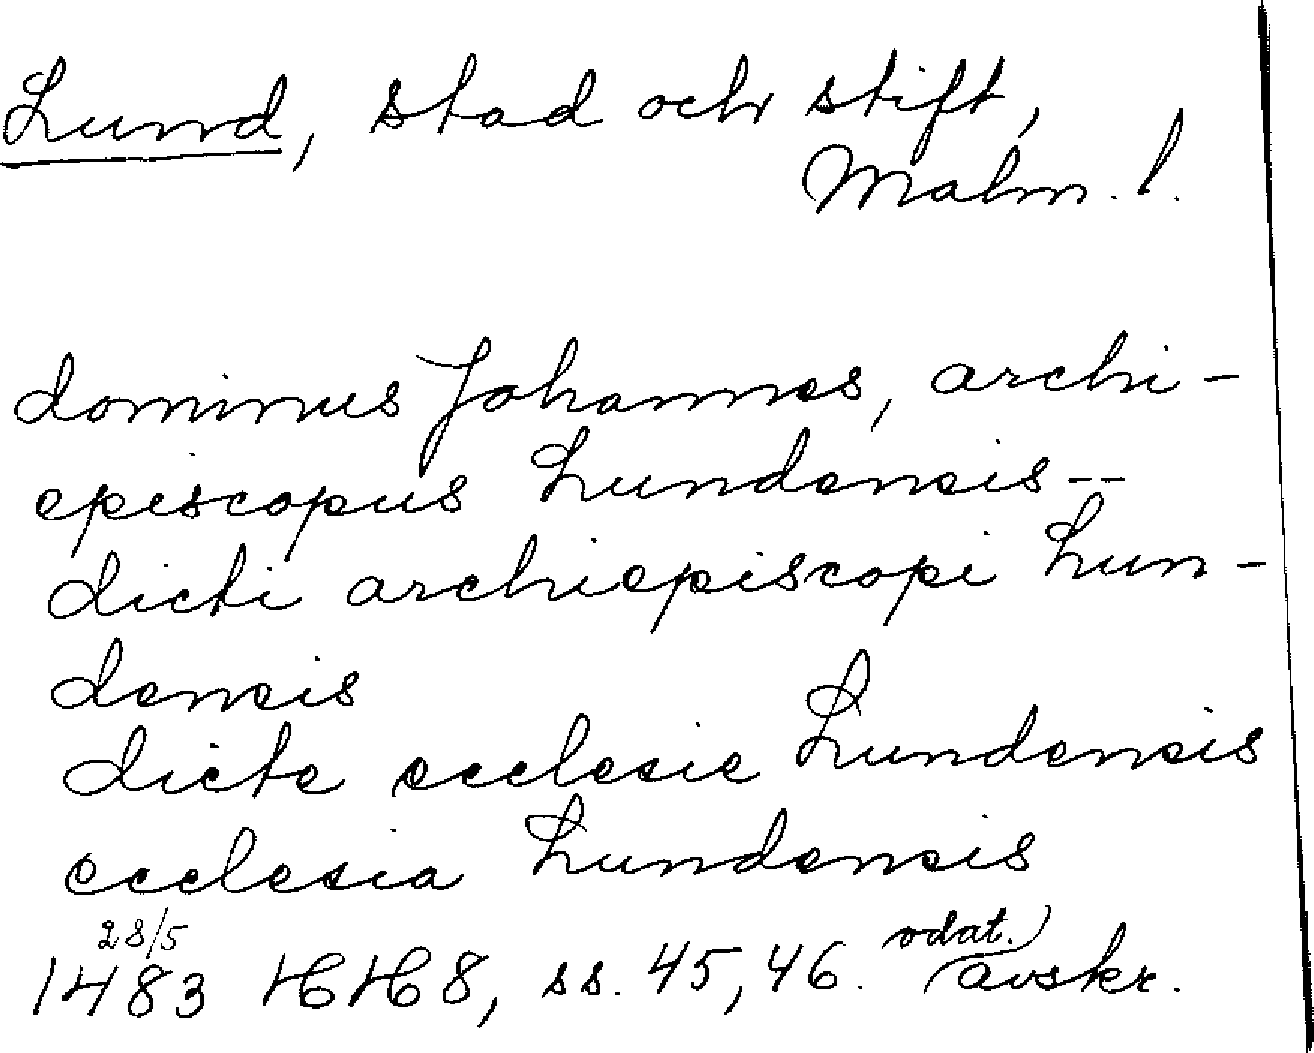 Lund, stad och stift,
Malm. l.
dominus Johannes, archi-
episcopus Lundensis--
dicti archiepiscopi Lun-
densis
dicte ecclesie Lundensis
ecclesia Lundensis
28/5
1483 HH 8, ss. 45, 46. odat.) avskr.